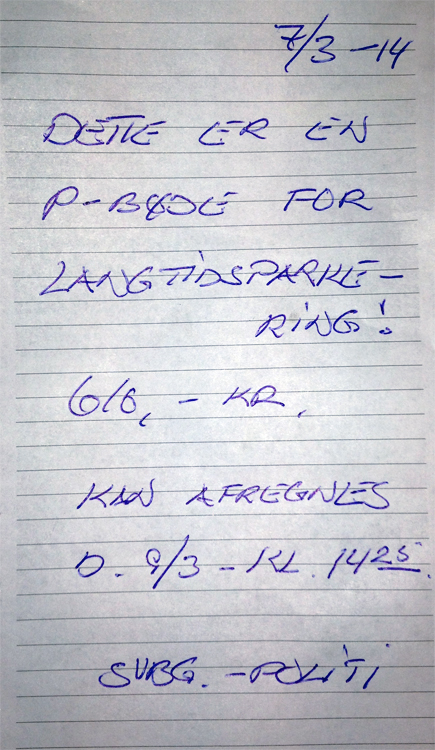 7/3-14
DETTE ER EN
P-BØDE FOR
LANGTIDSPARKE-
RING!
616,- KR.
KAN AFREGNES
D. 9/3 - KL. 1425.
SUBG.-POLITI